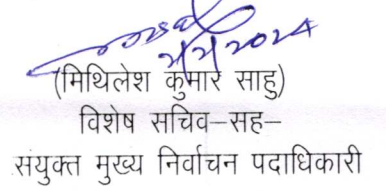 2024
(मिथिलेश कुमार साहु)
विशेष सचिव–सह–
संयुक्त मुख्य निर्वाचन पदाधिकारी